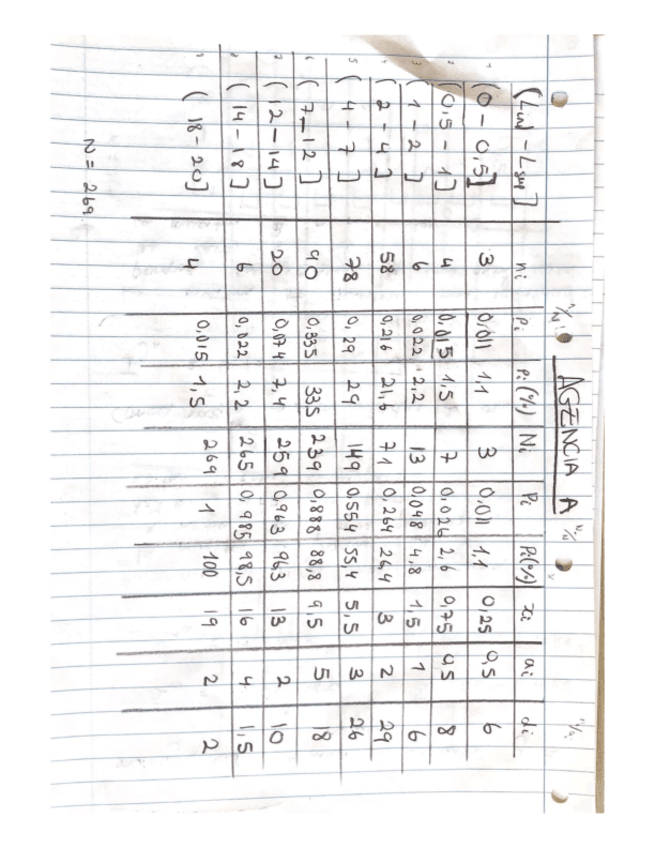 AGENCIA A
(Linf - Lsup] ni pi pi(%) Ni Pi Pi(%) xi ai di
(0 - 0,5] 3 0,011 1,1 3 0,011 1,1 0,25 0,5 6
(0,5 - 1] 4 0,015 1,5 7 0,026 2,6 0,75 0,5 8
(1 - 2] 6 0,022 2,2 13 0,048 4,8 1,5 1 6
(2 - 4] 58 0,216 21,6 71 0,264 26,4 3 2 29
(4 - 7] 78 0,29 29 149 0,554 55,4 5,5 3 26
(7 - 12] 90 0,335 33,5 239 0,888 88,8 9,5 5 18
(12 - 14] 20 0,074 7,4 259 0,963 96,3 13 2 10
(14 - 18] 6 0,022 2,2 265 0,985 98,5 16 4 1,5
(18 - 20] 4 0,015 1,5 269 1 100 19 2 2
N = 269